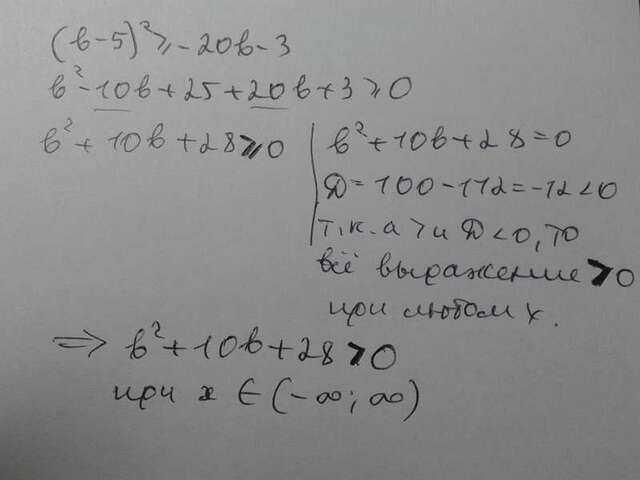 (в-5)²≥-20в-3
в²-10в+25+20в+3≥0
в²+10в+28≥0
в²+10в+28=0
Д=100-112=-12<0
т.к. а> и Д<0, то
всё выражение >0
при любом х.
⇒ в²+10в+28>0
при x ∈ (-∞; ∞)